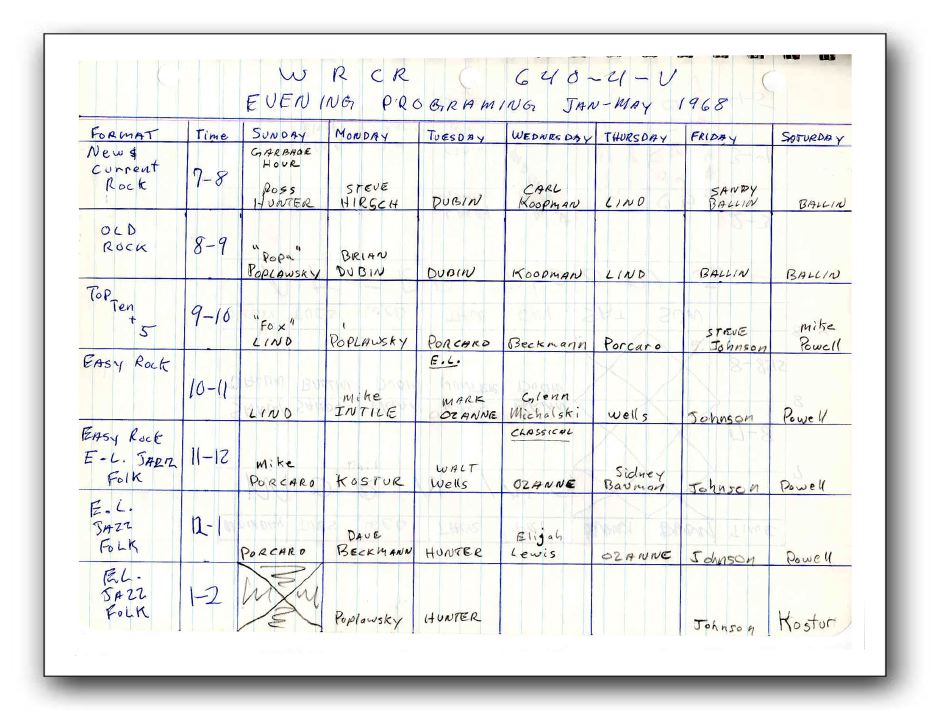 W R C R 640-4-U
EVENING PROGRAMING JAN-MAY 1968
FORMAT Time SUNDAY MONDAY TUESDAY WEDNESDAY THURSDAY FRIDAY SATURDAY
New & Current Rock 7-8 GARBAGE HOUR ROSS HUNTER STEVE HIRSCH DUBIN CARL KOOPMAN LIND SANDY BALLIN BALLIN
OLD ROCK 8-9 "Popa" POPLAWSKY BRIAN DUBIN DUBIN KOOPMAN LIND BALLIN BALLIN
TOP Ten + 5 9-10 "Fox" LIND POPLAWSKY PORCARO Beckmann Porcaro STEVE Johnson mike Powell
EASY ROCK 10-11 LIND mike INTILE E.L. MARK OZANNE Glenn Michalski Wells Johnson Powell
EASY Rock E-L. JAZZ FOLK 11-12 mike PORCARO KOSTUR WALT Wells CLASSICAL OZANNE Sidney Bauman Johnson Powell
E.L. JAZZ FOLK 12-1 PORCARO DAVE BECKMANN HUNTER Elijah Lewis OZANNE Johnson Powell
E.L. JAZZ FOLK 1-2 Poplawsky HUNTER Johnson Kostur